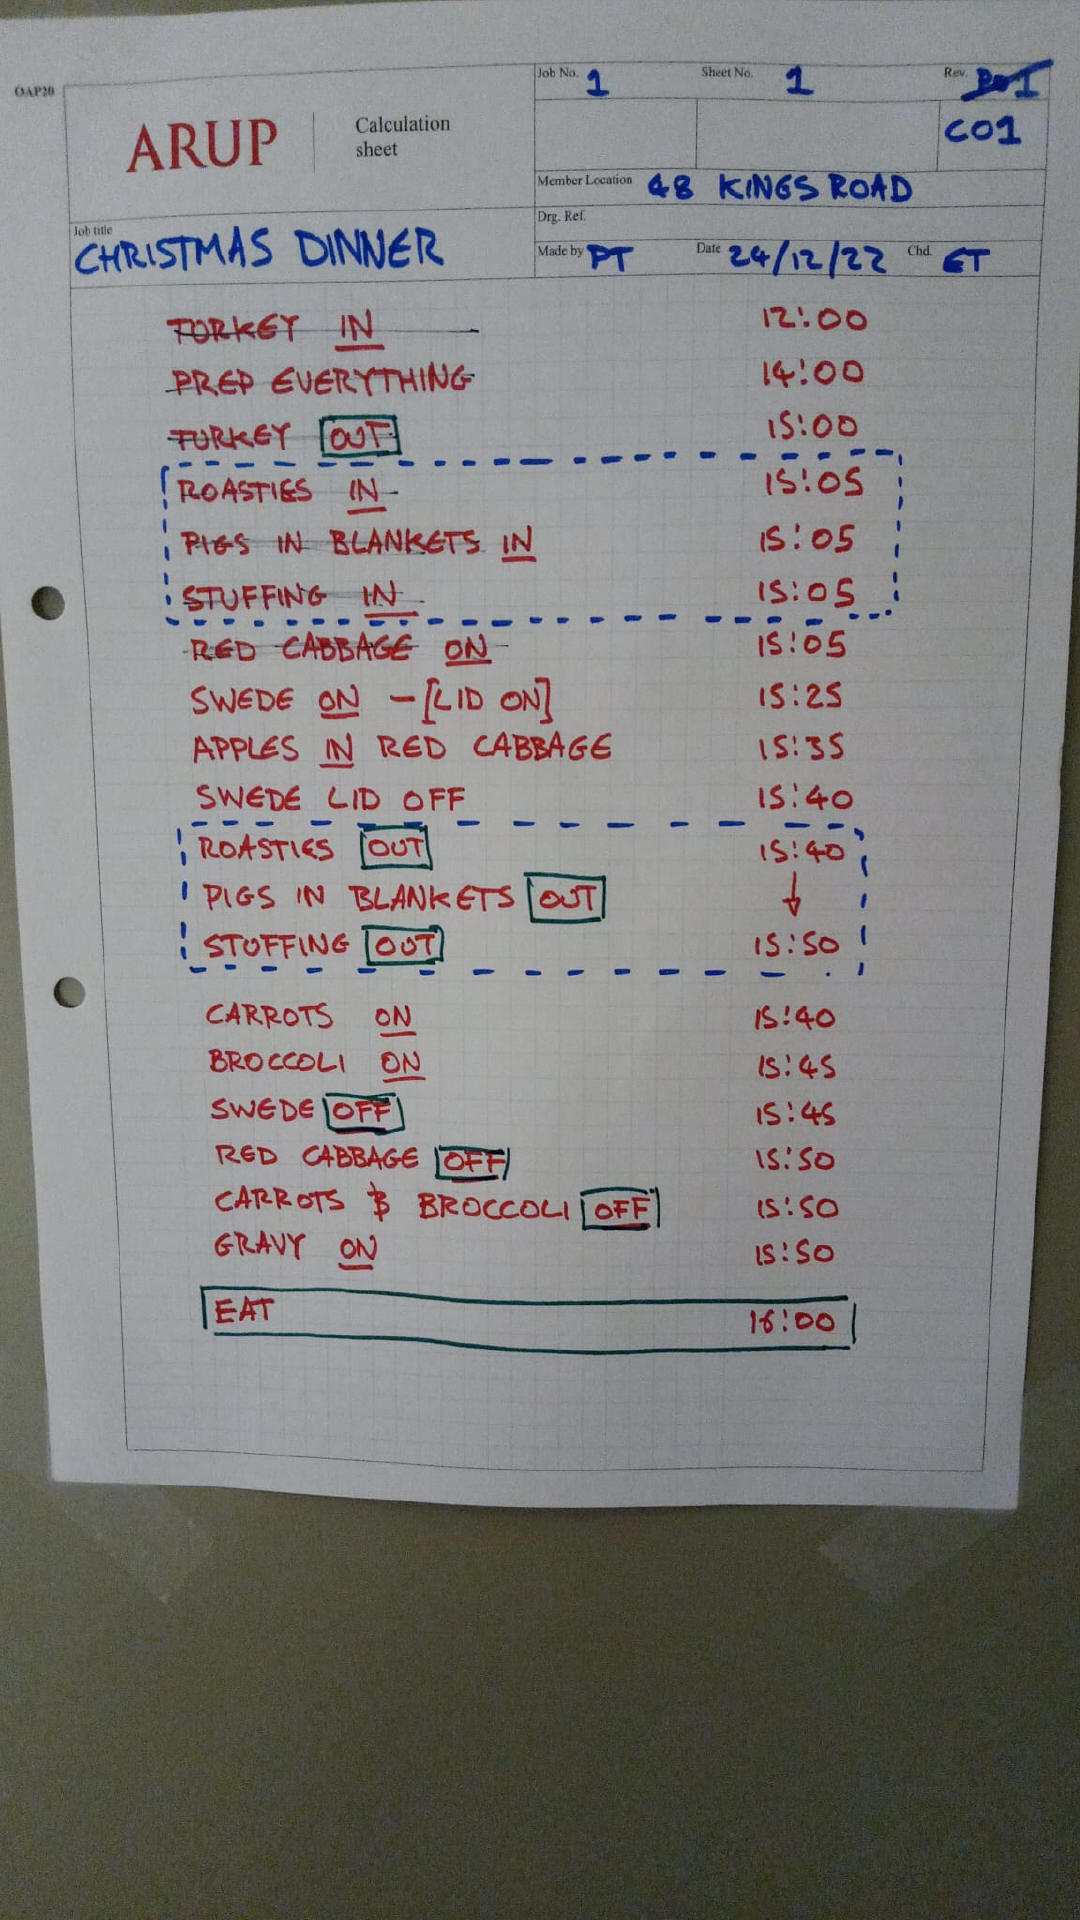 OAP20
ARUP
Calculation
sheet
Job No. 1
Sheet No. 1
Rev.
C01
Member Location 48 KINGS ROAD
Job title
CHRISTMAS DINNER
Drg. Ref.
Made by PT
Date 24/12/22
Chd. ET
TURKEY IN 12:00
PREP EVERYTHING 14:00
TURKEY OUT 15:00
ROASTIES IN 15:05
PIGS IN BLANKETS IN 15:05
STUFFING IN 15:05
RED CABBAGE ON 15:05
SWEDE ON - [LID ON] 15:25
APPLES IN RED CABBAGE 15:35
SWEDE LID OFF 15:40
ROASTIES OUT 15:40
PIGS IN BLANKETS OUT ↓
STUFFING OUT 15:50
CARROTS ON 15:40
BROCCOLI ON 15:45
SWEDE OFF 15:45
RED CABBAGE OFF 15:50
CARROTS & BROCCOLI OFF 15:50
GRAVY ON 15:50
EAT 16:00